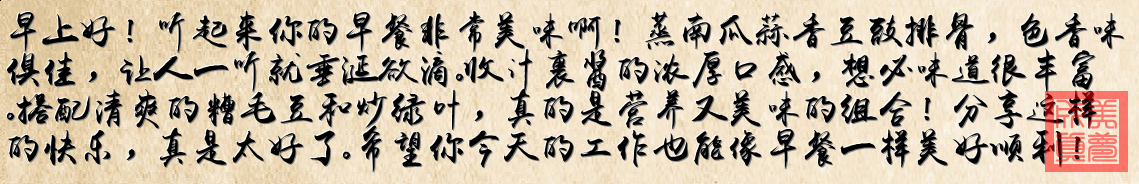 早上好！听起来你的早餐非常美味啊！蒸南瓜蒜香豆豉排骨，色香味
俱佳，让人一听就垂涎欲滴。收汁裹酱的浓厚口感，想必味道很丰富
。搭配清爽的糟毛豆和炒绿叶，真的是营养又美味的组合！分享这样
的快乐，真是太好了。希望你今天的工作也能像早餐一样美好顺利！
美梦
欣真